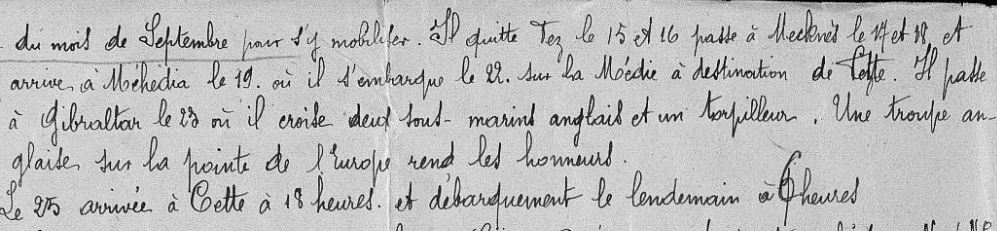 du mois de Septembre pour s'y mobiliser. Il quitte Fez le 15 et 16 passe à Mecknès le 17 et 18 et
arrive à Méhedia le 19. où il s'embarque le 22. sur la Médie à destination de Cette. Il passe
à Gibraltar le 23 où il croise deux sous-marins anglais et un torpilleur. Une troupe an-
glaise sur la pointe de l'Europe rend les honneurs.
Le 25 arrivée à Cette à 18 heures. et débarquement le lendemain à 6 heures